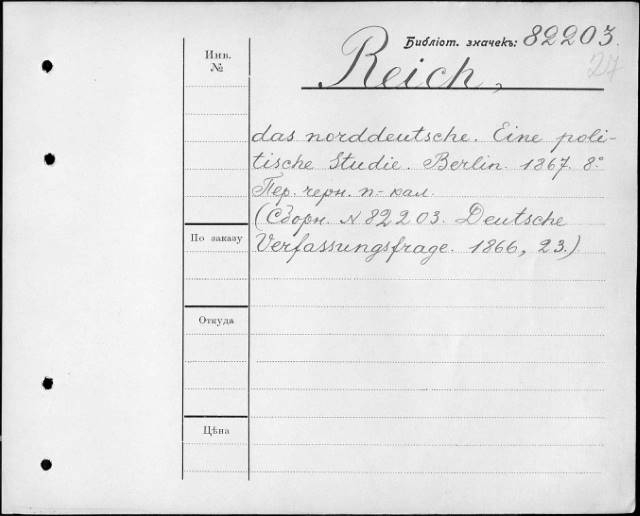 Библіот. значекъ: 82203.
27
Reich,
Инв.
№
das norddeutsche. Eine poli-
tische Studie. Berlin. 1867. 8.°
Пер. черн. п-кал.
(Сборн. № 82203. Deutsche
Verfassungsfrage. 1866, 23.)
По заказу
Откуда
Цѣна